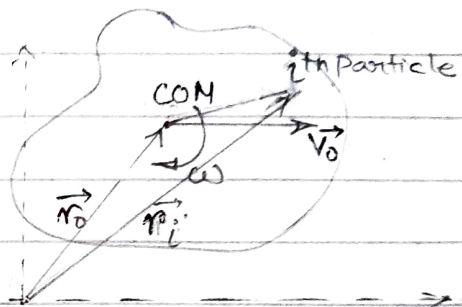 ith particle
COM
V₀
ω
r₀
r_i